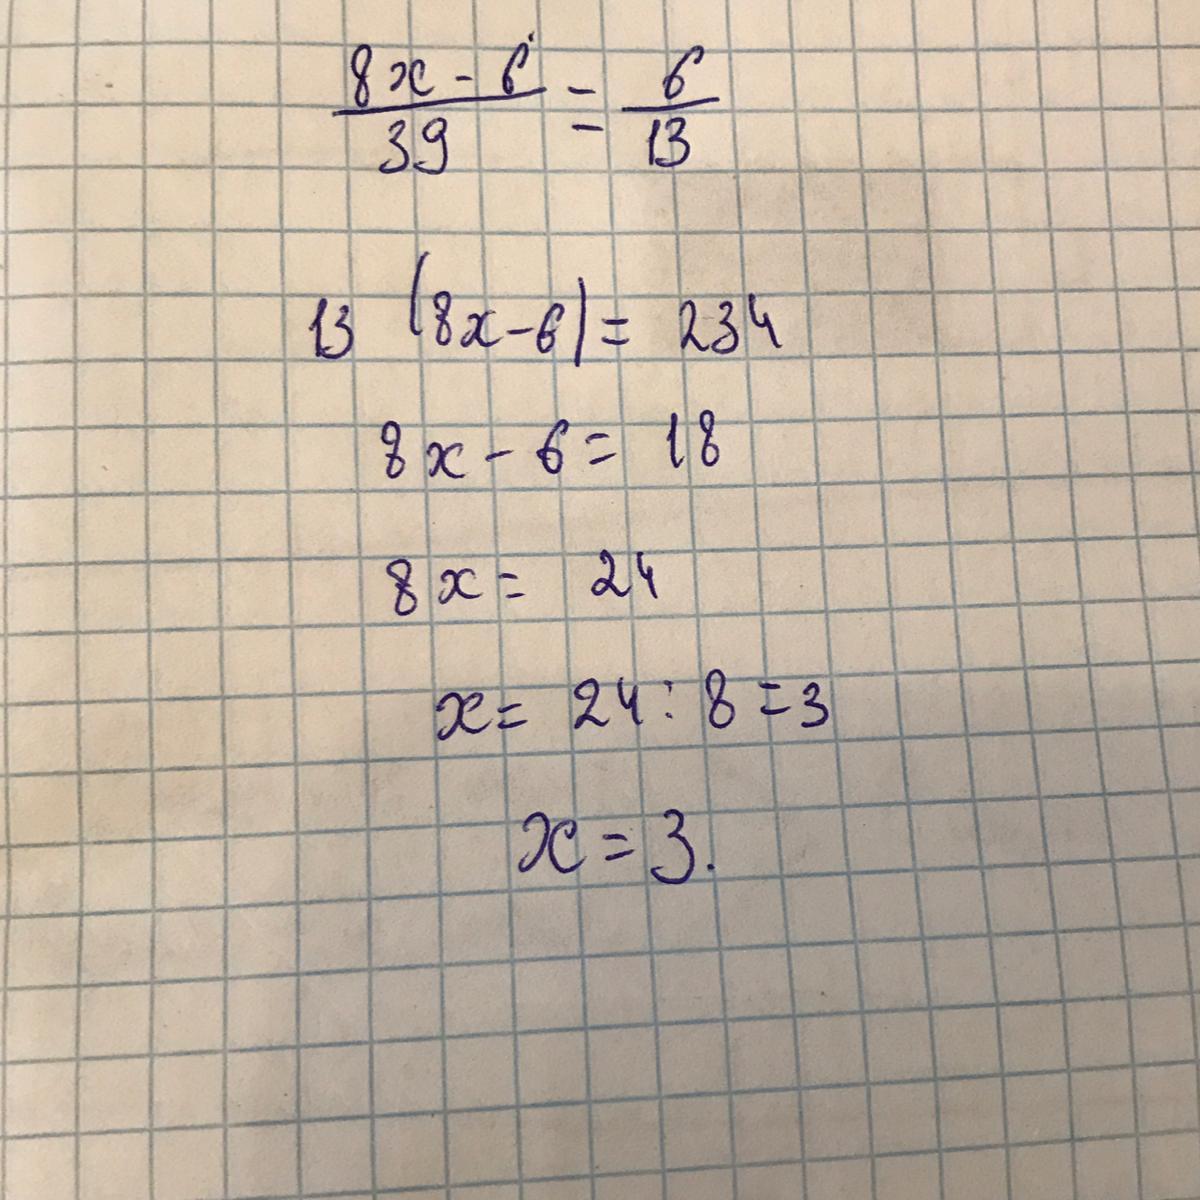 8x - 6 / 39 = 6 / 13
13 (8x-6) = 234
8x - 6 = 18
8x = 24
x = 24 : 8 = 3
x = 3.